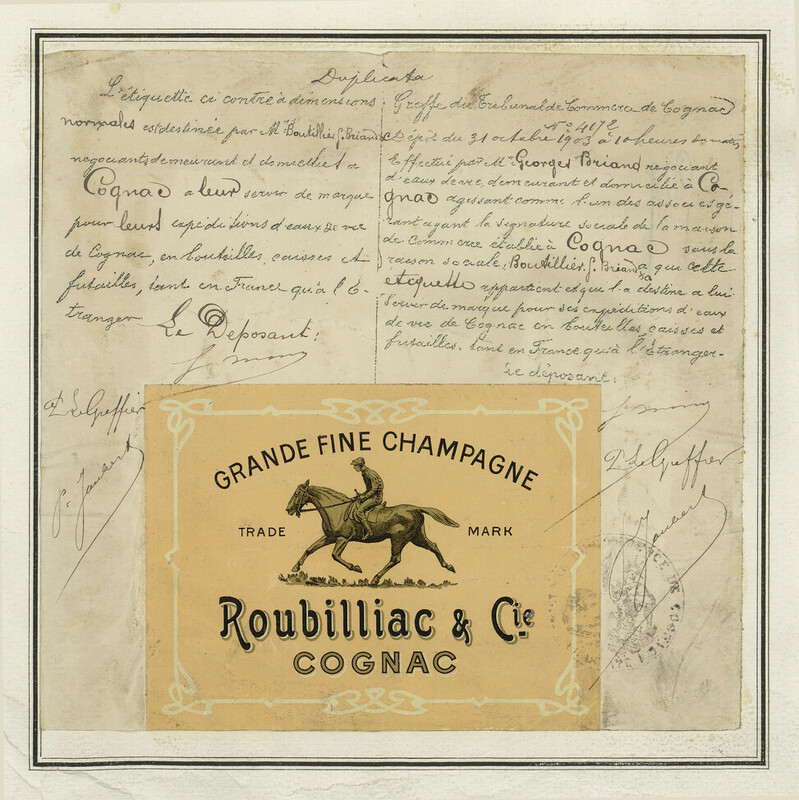 Duplicata
L'étiquette ci contre à dimensions
normales est destinée par Mr Boutillier G. Briand &
négociants demeurant et domiciliés à
Cognac a leur servir de marque
pour leurs expéditions d'eaux de vie
de Cognac, en bouteilles, caisses et
futailles, tant en France qu'à l'É-
tranger
Le Déposant:
Greffe du Tribunal de Commerce de Cognac
No 4172
Dépôt du 31 octobre 1903 à 10 heures du matin
Effectué par Mr Georges Briand négociant
d'eaux de vie, demeurant et domicilié à Co-
gnac agissant comme l'un des associés gé-
rant ayant la signature sociale de la maison
de commerce établie à Cognac sous la
raison sociale: Boutillier G. Briand & a qui cette
étiquette appartient et qui l'a destine a lui
servir de marque pour ses expéditions d'eaux
de vie de Cognac en bouteilles, caisses et
futailles. tant en France qu'à l'Étranger-
Le déposant:
P. Le Greffier
P. Jaubert
P. Le Greffier
Jaubert
GRANDE FINE CHAMPAGNE
TRADE MARK
Roubilliac & Cie
COGNAC